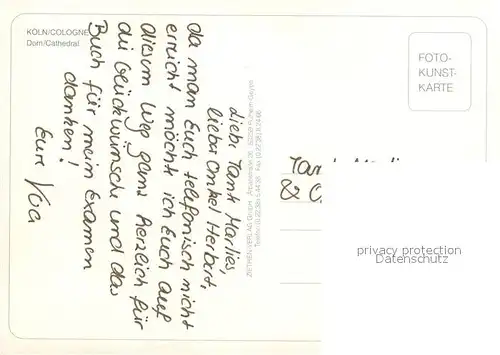 KÖLN/COLOGNE
Dom/Cathedral
Liebe Tante Marlies,
lieber Onkel Herbert,
da man Euch telefonisch nicht
erreicht möcht ich Euch auf
diesem Weg ganz herzlich für
die Glückwünsche und das
Buch für mein Examen
danken!
Eure
ZIETHEN-VERLAG GmbH
FOTO-
KUNST-
KARTE
&
privacy protection
Datenschutz